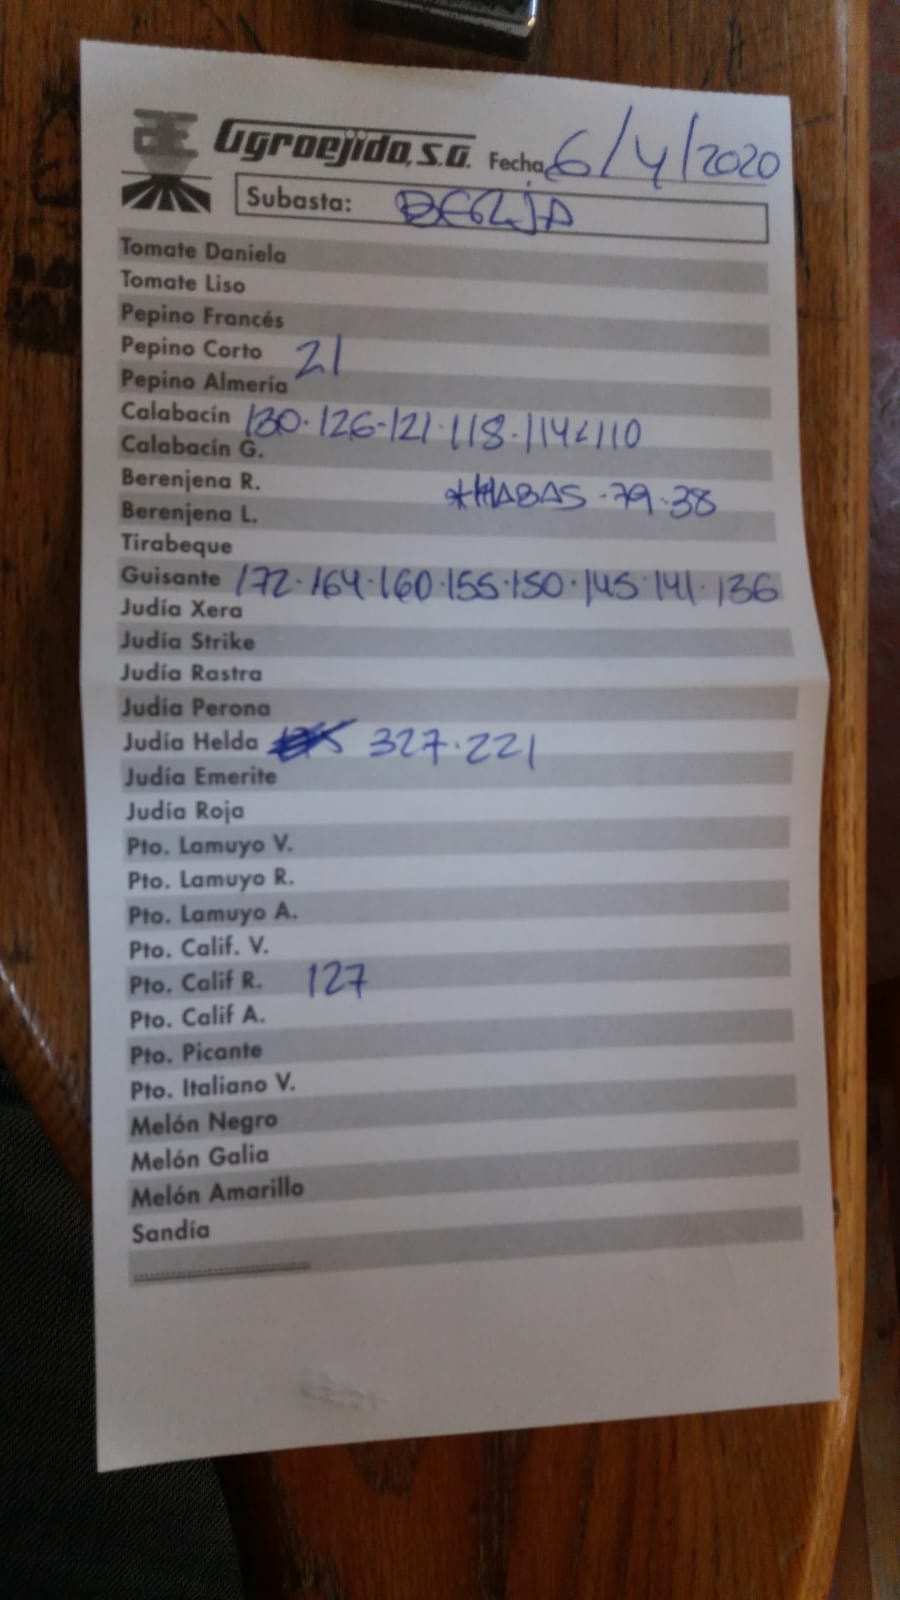 AE Agroejido, S.A. Fecha 6/4/2020
Subasta: BERJA
Tomate Daniela
Tomate Liso
Pepino Francés
Pepino Corto 21
Pepino Almería
Calabacín 130·126-121·118·114<110
Calabacín G.
Berenjena R. *HABAS·79·38
Berenjena L.
Tirabeque
Guisante 172·164·160·155·150·145·141·136
Judía Xera
Judía Strike
Judía Rastra
Judía Perona
Judía Helda 327·221
Judía Emerite
Judía Roja
Pto. Lamuyo V.
Pto. Lamuyo R.
Pto. Lamuyo A.
Pto. Calif. V.
Pto. Calif R. 127
Pto. Calif A.
Pto. Picante
Pto. Italiano V.
Melón Negro
Melón Galia
Melón Amarillo
Sandía